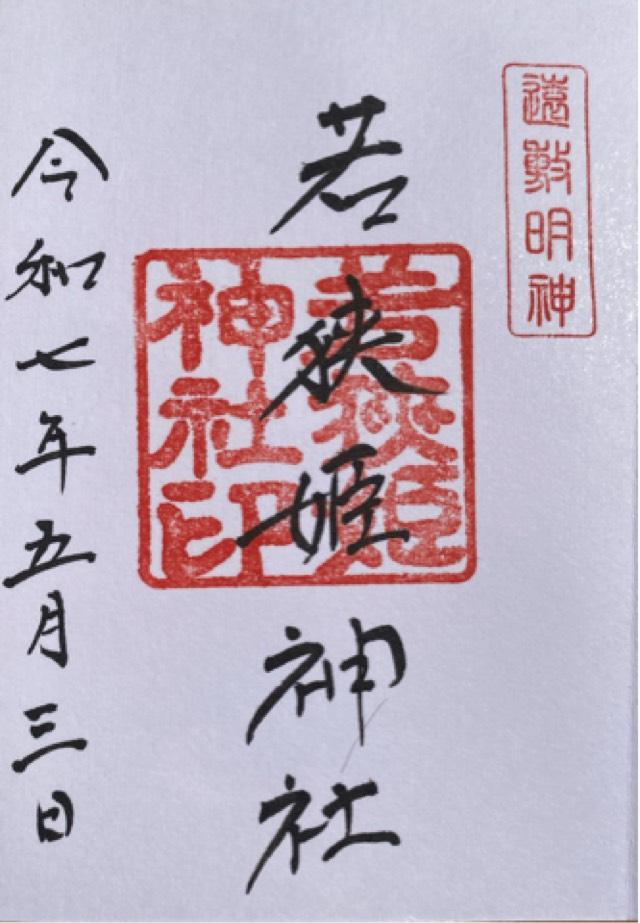 遠敷明神
若狭姫神社
若狭姫
神社印
令和七年五月三日